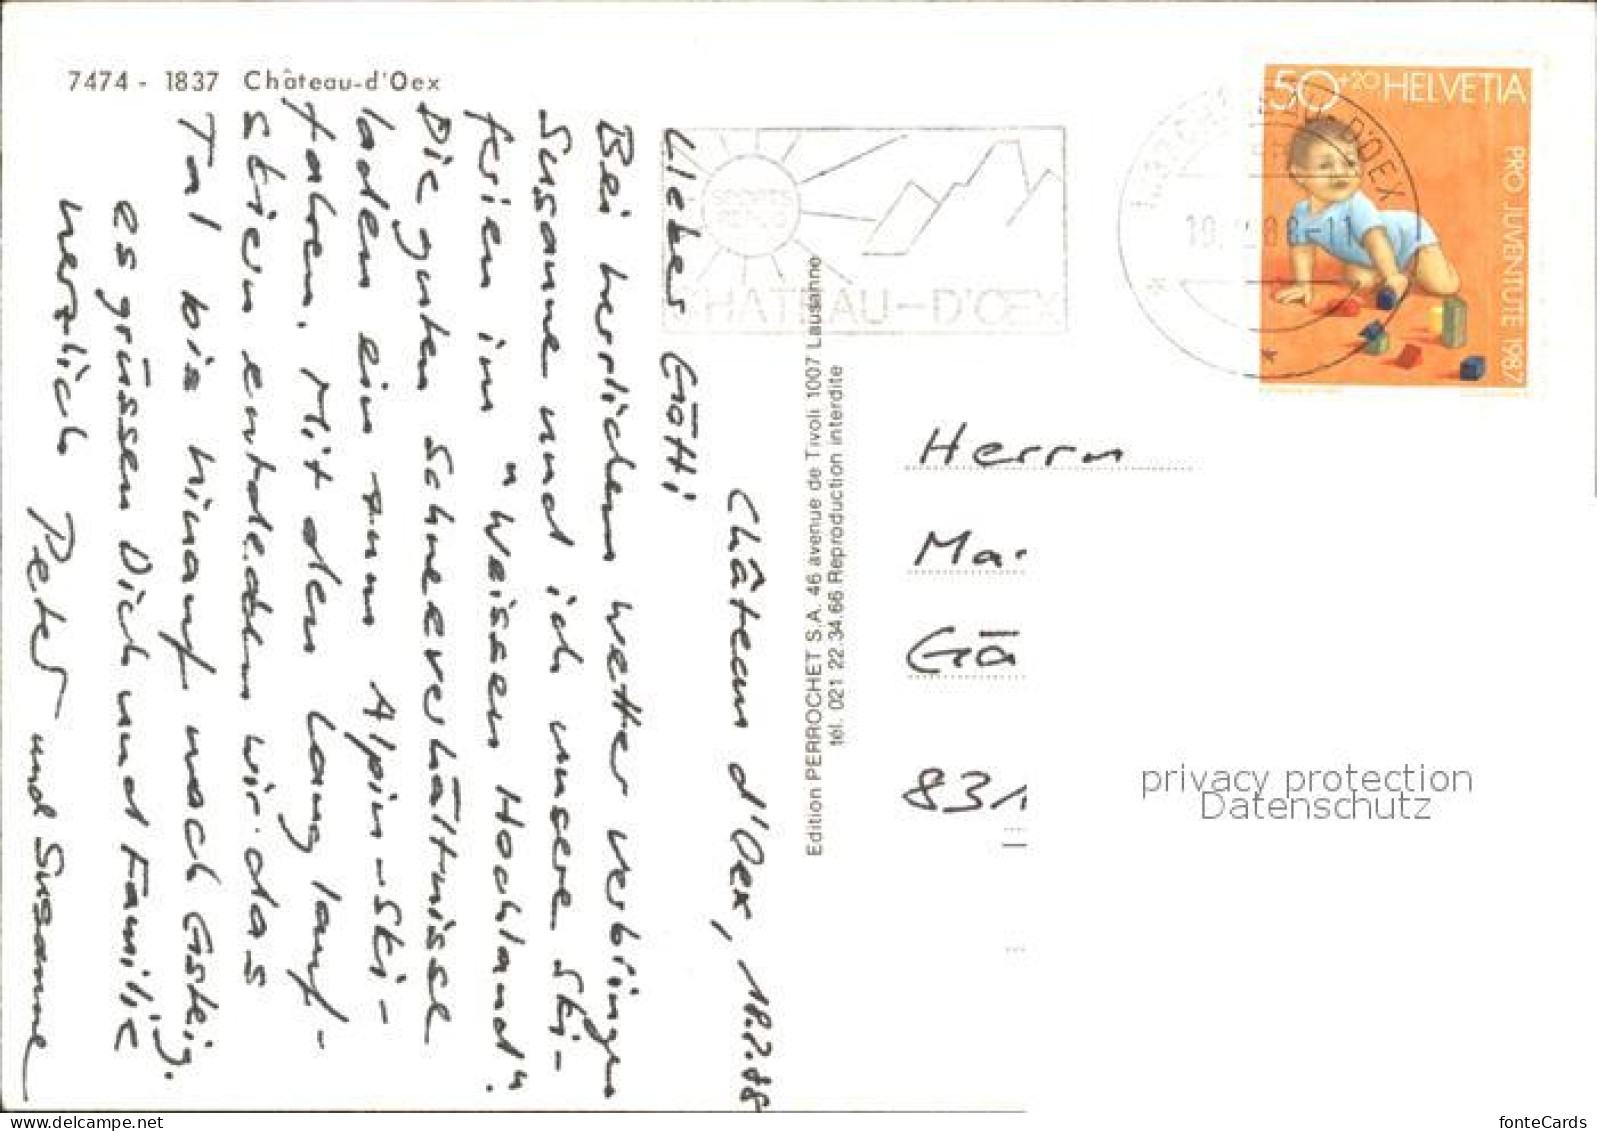 7474 - 1837 Château-d'Oex
Château d'Oex, 18.2.88
Lieber Götti
Bei herrlichem Wetter verbringen
Susanne und ich unsere Ski-
ferien im "Weissen Hochland".
Die guten Schneeverhältnisse
laden ein zum Alpin-Ski-
fahren. Mit den Langlauf-
skiern entdecken wir das
Tal bis hinauf nach Gsteig.
es grüssen Dich und Familie
herzlich Peter und Susanne
Edition PERROCHET S.A. 46 avenue de Tivoli 1007 Lausanne
tél. 021 22.34.66 Reproduction interdite
CHATEAU-D'OEX
50+20 HELVETIA
PRO JUVENTUTE 1987
Herrn
Ma
Gä
831
privacy protection
Datenschutz
fonteCards